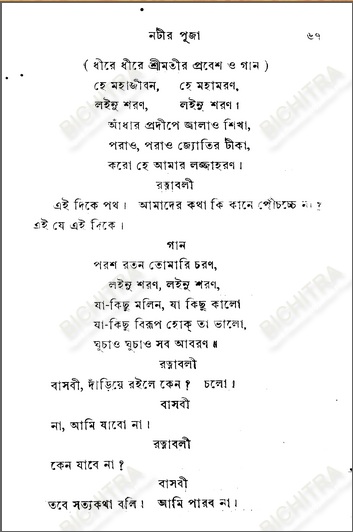 নটীর পূজা ৬৭
( ধীরে ধীরে শ্রীমতীর প্রবেশ ও গান )
হে মহাজীবন, হে মহামরণ,
লইনু শরণ, লইনু শরণ।
আঁধার প্রদীপে জ্বালাও শিখা,
পরাও, পরাও জ্যোতির টীকা,
করো হে আমার লজ্জাহরণ।
রত্নাবলী
এই দিকে পথ। আমাদের কথা কি কানে পৌঁচচ্চে না?
এই যে এই দিকে।
গান
পরশ রতন তোমারি চরণ,
লইনু শরণ, লইনু শরণ,
যা-কিছু মলিন, যা কিছু কালো
যা-কিছু বিরূপ হোক্ তা ভালো,
ঘুচাও ঘুচাও সব আবরণ॥
রত্নাবলী
বাসবী, দাঁড়িয়ে রইলে কেন? চলো।
বাসবী
না, আমি যাবো না।
রত্নাবলী
কেন যাবে না?
বাসবী
তবে সত্যকথা বলি। আমি পারব না।
BICHITRA
BICHITRA
BICHITRA
BICHITRA
BICHITRA
BICHITRA